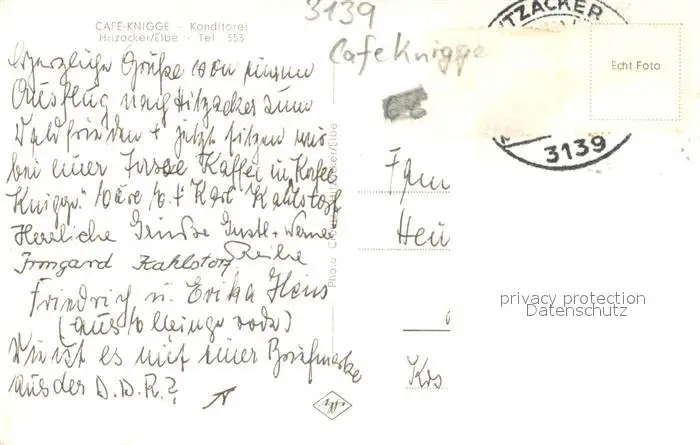 CAFÉ-KNIGGE - Konditorei
Hitzacker/Elbe - Tel 353
3139
Cafe Knigge
HITZACKER
Echt Foto
3139
Herzliche Grüße von einem
Ausflug nach Hitzacker zum
Waldfrieden + jetzt sitzen wir
bei einer Tasse Kaffee im Kafee
Knigge." + Karl Kahlstorf
Herzliche Grüße Gustl + Werner
Irmgard Kahlstorf Reihe
Friedrich u. Erika Heins
(aus
Wie ist es mit einer Briefmarke
aus der D.D.R.?
Fam
Heu
Krs
Photo
Hitzacker/Elbe
privacy protection
Datenschutz